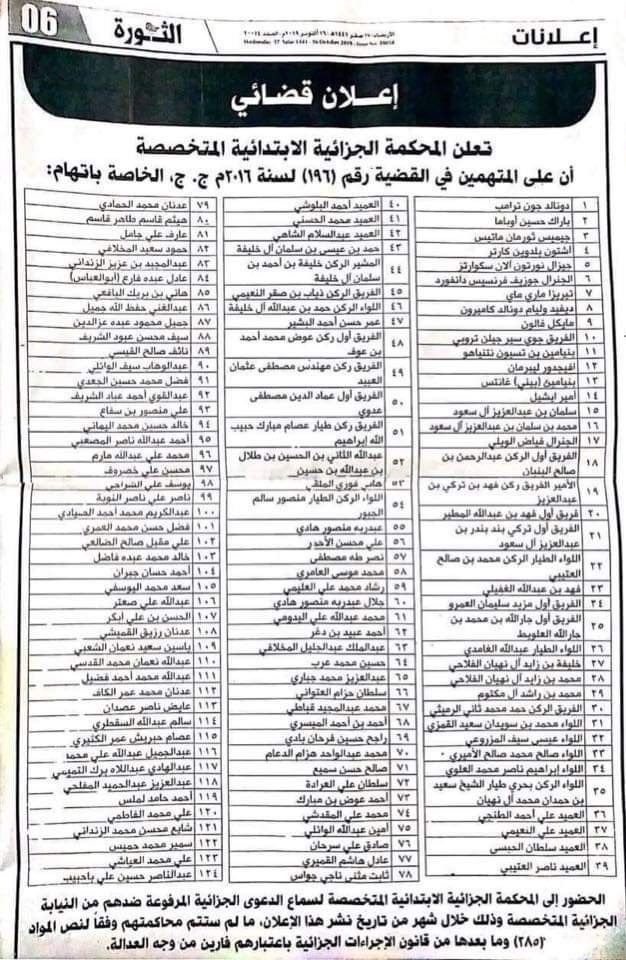 إعلانات
الأربعاء ١٧ صفر ١٤٤١هـ ١٦ أكتوبر ٢٠١٩م العدد ٢٠٠١٤
Wednesday 17 Safar 1441 - 16 October 2019
الثورة
06
إعلان قضائي
تعلن المحكمة الجزائية الابتدائية المتخصصة
أن على المتهمين في القضية رقم (١٩٦) لسنة ٢٠١٦م ج. ج، الخاصة باتهام:
١ دونالد جون ترامب
٢ باراك حسين أوباما
٣ جيمس نورمان ماتيس
٤ أشتون بلدوين كارتر
٥ جيزال نورتون آلان سكوارتز
٦ الجنرال جوزيف فرنسيس دانفورد
٧ تيريزا ماري ماي
٨ ديفيد وليام دونالد كاميرون
٩ مايكل فالون
١٠ الفريق جوي سير جيلن تروبي
١١ بنيامين بن تسيون نتنياهو
١٢ افيجدور ليبرمان
١٣ بنيامين (بيني) غانتس
١٤ أمير ايشيل
١٥ سلمان بن عبدالعزيز آل سعود
١٦ محمد بن سلمان بن عبدالعزيز آل سعود
١٧ الجنرال فياض الويلي
١٨ الفريق أول الركن عبدالرحمن بن
صالح البنيان
١٩ الأمير الفريق ركن فهد بن تركي بن
عبدالعزيز
٢٠ فريق أول فهد بن عبدالله المطير
٢١ الفريق أول تركي بند بندر بن
عبدالعزيز آل سعود
٢٢ اللواء الطيار الركن محمد بن صالح
العتيبي
٢٣ فهد بن عبدالله الغفيلي
٢٤ الفريق أول مزيد سليمان العمرو
٢٥ الفريق أول جارالله بن محمد بن
جارالله العلويط
٢٦ اللواء الطيار عبدالله الغامدي
٢٧ خليفة بن زايد آل نهيان الفلاحي
٢٨ محمد بن زايد آل نهيان الفلاحي
٢٩ محمد بن راشد آل مكتوم
٣٠ الفريق الركن حمد محمد ثاني الرميثي
٣١ اللواء محمد بن سويدان سعيد القمزي
٣٢ اللواء عيسى سيف المزروعي
٣٣ اللواء صالح محمد صالح الأميري
٣٤ اللواء إبراهيم ناصر محمد العلوي
٣٥ اللواء الركن بحري طيار الشيخ سعيد
بن حمدان محمد آل نهيان
٣٦ العميد علي أحمد الطنجي
٣٧ العميد علي النعيمي
٣٨ العميد سلطان الحبسي
٣٩ العميد ناصر العتيبي
٤٠ العميد أحمد البلوشي
٤١ العميد محمد الحسني
٤٢ العميد عبدالسلام الشاهي
٤٣ حمد بن عيسى بن سلمان آل خليفة
٤٤ المشير الركن خليفة بن أحمد بن
سلمان آل خليفة
٤٥ الفريق الركن ذياب بن صقر النعيمي
٤٦ اللواء الركن حمد بن عبدالله آل خليفة
٤٧ عمر حسن أحمد البشير
٤٨ الفريق أول ركن عوض محمد أحمد
بن عوف
٤٩ الفريق ركن مهندس مصطفى عثمان
العبيد
٥٠ الفريق أول عماد الدين مصطفى
عدوي
٥١ الفريق ركن طيار عصام مبارك حبيب
الله إبراهيم
٥٢ عبدالله الثاني بن الحسين بن طلال
بن عبدالله بن حسين
٥٣ هاني فوزي الملقي
٥٤ اللواء الركن الطيار منصور سالم
الجبور
٥٥ عبدربه منصور هادي
٥٦ علي محسن الأحمر
٥٧ نصر طه مصطفى
٥٨ محمد موسى العامري
٥٩ رشاد محمد علي العليمي
٦٠ جلال عبدربه منصور هادي
٦١ محمد عبدالله علي اليدومي
٦٢ أحمد عبيد بن دغر
٦٣ عبدالملك عبدالجليل المخلافي
٦٤ حسين محمد عرب
٦٥ عبدالعزيز محمد جباري
٦٦ سلطان حزام العتواني
٦٧ محمد عبدالمجيد قباطي
٦٨ أحمد بن أحمد الميسري
٦٩ راجح حسين فرحان بادي
٧٠ محمد عبدالواحد هزام الدعام
٧١ صالح حسن سميع
٧٢ سلطان علي العرادة
٧٣ أحمد عوض بن مبارك
٧٤ محمد علي المقدشي
٧٥ أمين عبدالله الوائلي
٧٦ صادق علي سرحان
٧٧ عادل هاشم القميري
٧٨ ثابت مثنى ناجي جواس
٧٩ عدنان محمد الحمادي
٨٠ هيثم قاسم طاهر قاسم
٨١ عارف علي جامل
٨٢ حمود سعيد المخلافي
٨٣ عبدالمجيد بن عزيز الزنداني
٨٤ عادل عبده فارع (أبوالعباس)
٨٥ هاني بن بريك اليافعي
٨٦ عبدالغني حفظ الله جميل
٨٧ جميل محمود عبده عزالدين
٨٨ سيف محسن عبود الشريف
٨٩ نائف صالح القيسي
٩٠ عبدالوهاب سيف الوائلي
٩١ فضل محمد حسين الجعدي
٩٢ عبدالقوي أحمد عباد الشريف
٩٣ علي منصور بن سفاع
٩٤ خالد حسين محمد اليماني
٩٥ أحمد عبدالله ناصر المصعبي
٩٦ محمد علي عبدالله مارم
٩٧ محسن علي خصروف
٩٨ يوسف علي الشراجي
٩٩ ناصر علي ناصر النوبة
١٠٠ عبدالكريم محمد أحمد الصيادي
١٠١ فضل حسن محمد العمري
١٠٢ علي مقبل صالح الضالعي
١٠٣ خالد محمد عبده فاضل
١٠٤ أحمد حسان جبران
١٠٥ سعد محمد اليوسفي
١٠٦ عبدالله علي صعتر
١٠٧ الحسن بن علي أبكر
١٠٨ عدنان رزيق القميشي
١٠٩ ياسين سعيد نعمان الشعبي
١١٠ عبدالله نعمان محمد القدسي
١١١ عبدالله محمد أحمد فضيل
١١٢ عدنان محمد عمر الكاف
١١٣ عايض ناصر عصدان
١١٤ سالم عبدالله السقطري
١١٥ عصام حبريش عمر الكثيري
١١٦ عبدالجميل عبدالله علي محمد
١١٧ عبدالهادي عبداللاه برك التميمي
١١٨ عبدالعزيز عبدالحميد المفلحي
١١٩ أحمد حامد لملس
١٢٠ علي محمد الفاطمي
١٢١ شايع محسن محمد الزنداني
١٢٢ سمير محمد خميس
١٢٣ علي محمد العياشي
١٢٤ عبدالناصر حسين علي باحبيب
الحضور إلى المحكمة الجزائية الابتدائية المتخصصة لسماع الدعوى الجزائية المرفوعة ضدهم من النيابة
الجزائية المتخصصة وذلك خلال شهر من تاريخ نشر هذا الإعلان، ما لم ستتم محاكمتهم وفقاً لنص المواد
(٢٨٥) وما بعدها من قانون الإجراءات الجزائية باعتبارهم فارين من وجه العدالة.